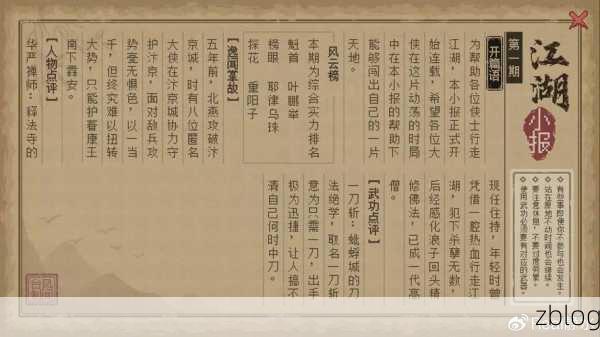 江湖
小报
第一期
有些事即使你不参与也会发生。
站在原地不动时间也会继续。
要注意休息，不要过度劳累。
使用武功必须要有对应的武器。
【开篇语】
为帮助各位侠士行走
江湖，本小报正式开
始连载，希望各位大
侠在这片动荡的时局
中在本小报的帮助下
能够闯出自己的一片
天地。
风云榜
本期为综合实力排名
魁首 叶鹏举
榜眼 耶律乌珠
探花 重阳子
【逸闻掌故】
五年前，北燕攻破汴
京城，时有八位匿名
大侠在汴京城协力守
护汴京，面对敌兵攻
势毫无惧色，以一当
千，但终究难以扭转
大势，只能护着康王
南下
【人物点评】
华严禅师：释法寺的
现任住持，年轻时曾
凭借一腔热血行走江
湖，犯下杀孽无数，
后经感化浪子回头精
修佛法，已成一代高
僧。
【武功点评】
一刀斩：蚍蜉城的刀
法绝学，取名一刀斩
意为只需一刀，出手
极为迅捷，让人搞不
清自己何时中刀。
zblog